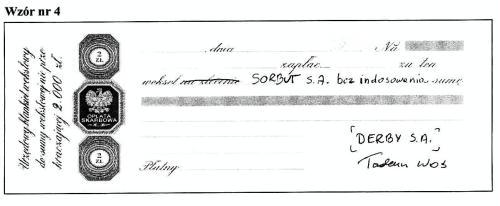 Wzór nr 4
Urzędowy blankiet wekslowy
do sumy wekslowej nie prze-
kraczającej 2.000 zł.
2
ZŁ
OPŁATA
SKARBOWA
2
ZŁ
dnia Na
zapłac za ten
weksel na zlecenie SORBUT S.A. bez indosowania sumę
[DERBY S.A.]
Tadeusz Woś
Płatny